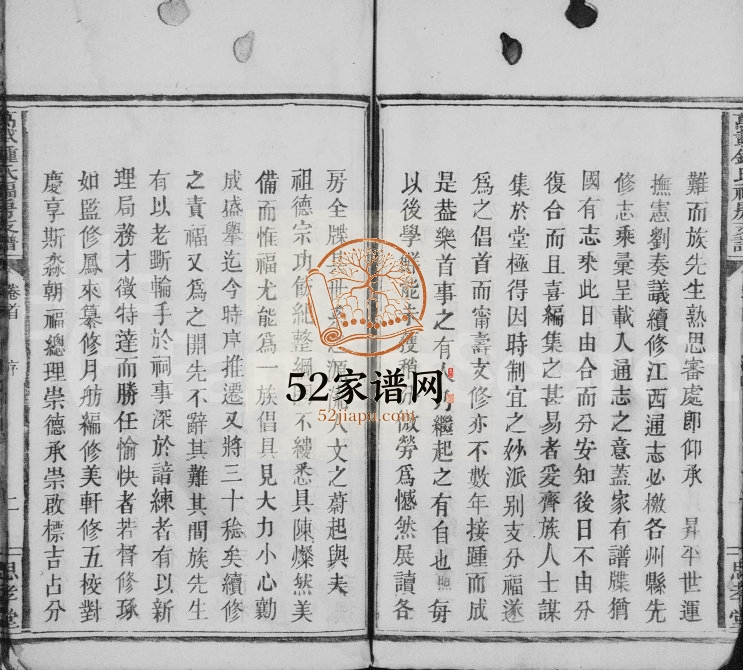 難而族先生熟思審處卽仰承 昇平世運
撫憲劉奏議續修江西通志必檄各州縣先
修志乘彙呈載入通志之意蓋家有譜牒猶
國有志乘此日由合而分安知後日不由分
復合而且喜編集之甚易者爰齊族人士謀
集於堂極得因時制宜之妙派別支分福遂
爲之倡首而甯壽支修亦不數年接踵而成
是葢樂首事之有人 繼起之有自也照每
以後學 能未獲 微勞爲憾然展讀各
房全牒其世 源 人文之蔚起與夫
祖德宗功 整綱 不縷悉具陳燦然美
備而惟福尤能爲一族倡具見大力小心勷
成盛擧迄今時序推遷又將三十稔矣續修
之責福又爲之開先不辭其難其間族先生
有以老斲輪手於祠事深於諳練者有以新
理局務才徵特達而勝任愉快者若督修琢
如監修鳳來纂修月舫編修美軒修五校對
慶享斯淼朝福總理崇德承崇啟標吉占分
萬載鍾氏福房支譜
卷首
序
二
思孝堂
52家谱网
52jiapu.com